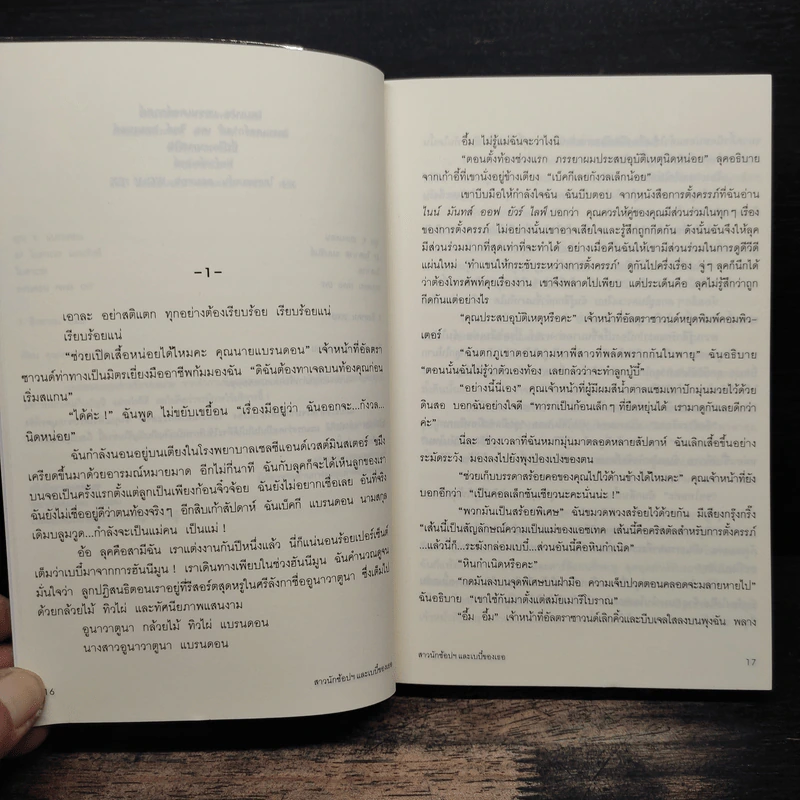 -1-
เอาละ อย่าสติแตก ทุกอย่างต้องเรียบร้อย เรียบร้อยแน่
เรียบร้อยแน่
“ช่วยเปิดเสื้อหน่อยได้ไหมคะ คุณนายแบรนดอน” เจ้าหน้าที่อัลตรา
ซาวนด์ท่าทางเป็นมิตรเยี่ยงมืออาชีพก้มมองฉัน “ดิฉันต้องทาเจลบนท้องคุณก่อน
เริ่มสแกน”
“ได้ค่ะ!” ฉันพูด ไม่ขยับเขยื้อน “เรื่องมีอยู่ว่า ฉันออกจะ...กังวล...
นิดหน่อย”
ฉันกำลังนอนอยู่บนเตียงในโรงพยาบาลเชลซีแอนด์เวสต์มินสเตอร์ ขมึง
เครียดขึ้นมาด้วยอารมณ์หมายมาด อีกไม่กี่นาที ฉันกับลุคก็จะได้เห็นลูกของเรา
บนจอเป็นครั้งแรกตั้งแต่ลูกเป็นเพียงก้อนจิ๋วจ้อย ฉันยังไม่อยากเชื่อเลย อันที่จริง
ฉันยังไม่เชื่ออยู่ดีว่าตนท้องจริงๆ อีกสิบเก้าสัปดาห์ ฉันเบ็คกี แบรนดอน นามสกุล
เดิมบลูมวูด...กำลังจะเป็นแม่คน เป็นแม่!
อ้อ ลุคคือสามีฉัน เราแต่งงานกันปีหนึ่งแล้ว นี่ก็แน่นอนร้อยเปอร์เซ็นต์
เต็มว่าเบบี๋มาจากการฮันนีมูน! เราเดินทางเพียบในช่วงฮันนีมูน ฉันคำนวณดูจน
มั่นใจว่า ลูกปฏิสนธิตอนเราอยู่ที่รีสอร์ตสุดหรูในศรีลังกาชื่ออูนาวาตูนา ซึ่งเต็มไป
ด้วยกล้วยไม้ ทิวไผ่ และทัศนียภาพแสนงาม
อูนาวาตูนา กล้วยไม้ ทิวไผ่ แบรนดอน
นางสาวอูนาวาตูนา แบรนดอน
16
สาวนักช้อปฯ และเบบี๋ของเธอ
อึ้ม ไม่รู้แม่ฉันจะว่าไงนี
“ตอนตั้งท้องช่วงแรก ภรรยาผมประสบอุบัติเหตุนิดหน่อย” ลุคอธิบาย
จากเก้าอี้ที่เขานั่งอยู่ข้างเตียง “เบ็คกีเลยกังวลเล็กน้อย”
เขาบีบมือให้กำลังใจฉัน ฉันบีบตอบ จากหนังสือการตั้งครรภ์ที่ฉันอ่าน
ไนน์ มันทส์ ออฟ ยัวร์ ไลฟ์ บอกว่า คุณควรให้คู่ของคุณมีส่วนร่วมในทุกๆ เรื่อง
ของการตั้งครรภ์ ไม่อย่างนั้นเขาอาจเสียใจและรู้สึกถูกกีดกัน ดังนั้นฉันจึงให้ลุค
มีส่วนร่วมมากที่สุดเท่าที่จะทำได้ อย่างเมื่อคืนฉันให้เขามีส่วนร่วมในการดูดีวีดี
แผ่นใหม่ ‘ทำแขนให้กระชับระหว่างการตั้งครรภ์’ ดูกันไปครึ่งเรื่อง จู่ๆ ลุคก็นึกได้
ว่าต้องโทรศัพท์คุยเรื่องงาน เขาจึงพลาดไปเพียบ แต่ประเด็นคือ ลุคไม่รู้สึกว่าถูก
กีดกันแต่อย่างไร
“คุณประสบอุบัติเหตุหรือคะ” เจ้าหน้าที่อัลตราซาวนด์หยุดพิมพ์คอมพิว-
เตอร์
“ฉันตกภูเขาตอนตามหาพี่สาวที่พลัดพรากกันในพายุ” ฉันอธิบาย
“ตอนนั้นฉันไม่รู้ว่าตัวเองท้อง เลยกลัวว่าจะทำลูกบู้บี้”
“อย่างนี้นี่เอง” คุณเจ้าหน้าที่ผู้มีผมสีน้ำตาลแซมเทาปักมุ่นมวยไว้ด้วย
ดินสอ บอกฉันอย่างใจดี “ทารกเป็นก้อนเล็กๆ ที่ยืดหยุ่นได้ เรามาดูกันเลยดีกว่า
ค่ะ”
นี่ละ ช่วงเวลาที่ฉันหมกมุ่นมาตลอดหลายสัปดาห์ ฉันเลิกเสื้อขึ้นอย่าง
ระมัดระวัง มองลงไปยังพุงป่องเป่งของตน
“ช่วยเก็บบรรดาสร้อยคอของคุณไปไว้ด้านข้างได้ไหมคะ” คุณเจ้าหน้าที่ยัง
บอกอีกว่า “เป็นคอลเล็กชันเชียวนะคะนั่นน่ะ!”
“พวกมันเป็นสร้อยพิเศษ” ฉันขมวดพวงสร้อยไว้ด้วยกัน มีเสียงกรุ๊งกริ๊ง
“เส้นนี้เป็นสัญลักษณ์ความเป็นแม่ของแอซเทค เส้นนี้คือคริสตัลสำหรับการตั้งครรภ์
...แล้วนี่ก็...ระฆังกล่อมเบบี๋...ส่วนอันนี้คือหินกำเนิด”
“หินกำเนิดหรือคะ”
“กดมันลงบนจุดพิเศษบนฝ่ามือ ความเจ็บปวดตอนคลอดจะมลายหายไป”
ฉันอธิบาย “เขาใช้กันมาตั้งแต่สมัยเมารีโบราณ”
“อึ้ม อึ้ม” เจ้าหน้าที่อัลตราซาวนด์เลิกคิ้วและบีบเจลใสลงบนพุงฉัน พลาง
สาวนักช้อปฯ และเบบี๋ของเธอ
17